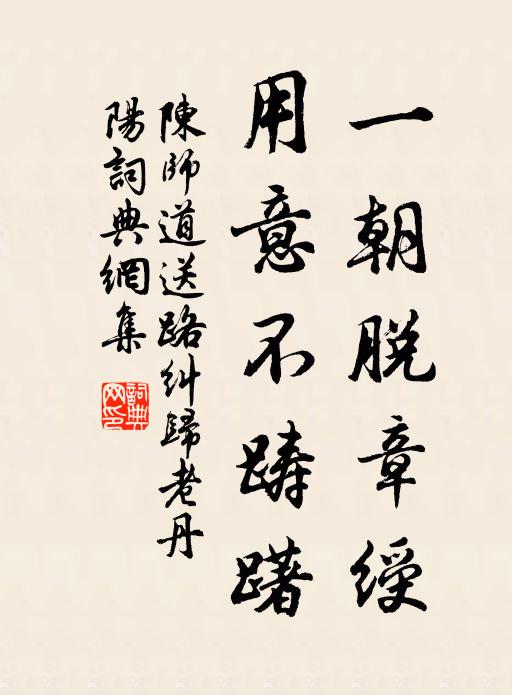 一朝脱章綬
用意不躊躇
陳師道送路糾歸老丹
陽詞典網集
詞典網印